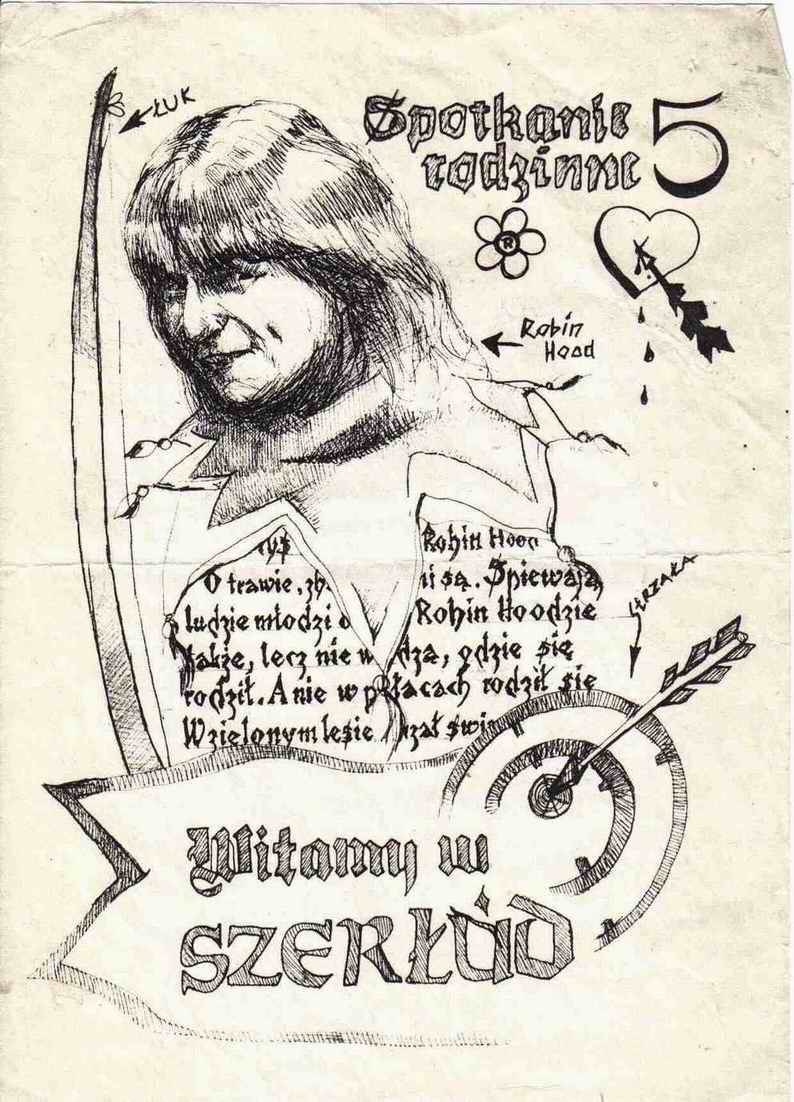 ŁUK
Spotkanie 5
rodzinne
R
Robin
Hood
Robin Hood
O trawie, są. Śpiewają
ludzie młodzi o Robin Hoodzie
także, lecz nie gdzie się
rodził. A nie w pałacach rodził się
W zielonym lesie
STRZAŁA
Witamy w
SZERŁÚD